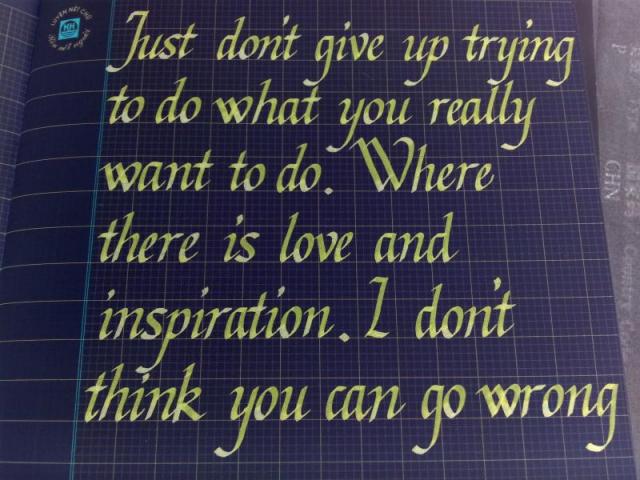 LUYỆN NÉT CHỮ
Just don't give up trying
to do what you really
want to do. Where
there is love and
inspiration. I don't
think you can go wrong
GHN